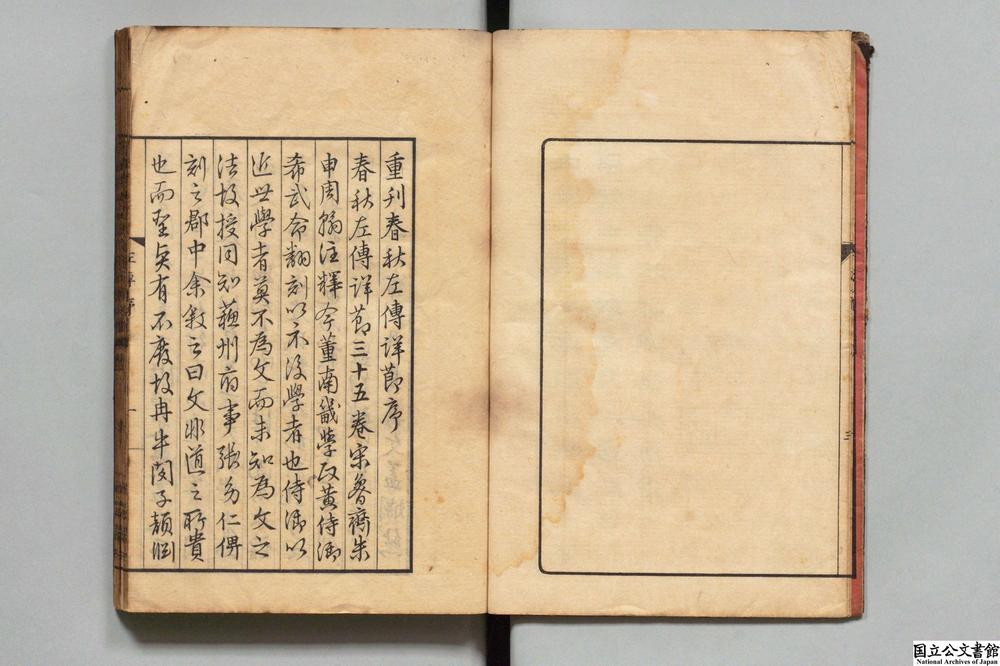 重刊春秋左傳詳節序
春秋左傳詳節三十五卷宋魯齋朱
申周翰注釋今董南畿學政黃侍御
希武命翻刻以示後學者也侍御以
近世學者莫不為文而未知為文之
法故授同知蘓州府事張幼仁俾
刻之郡中余敘之曰文非道之所貴
也而聖矣有不廢故冉牛閔子顏淵
三
國立公文書館
National Archives of Japan